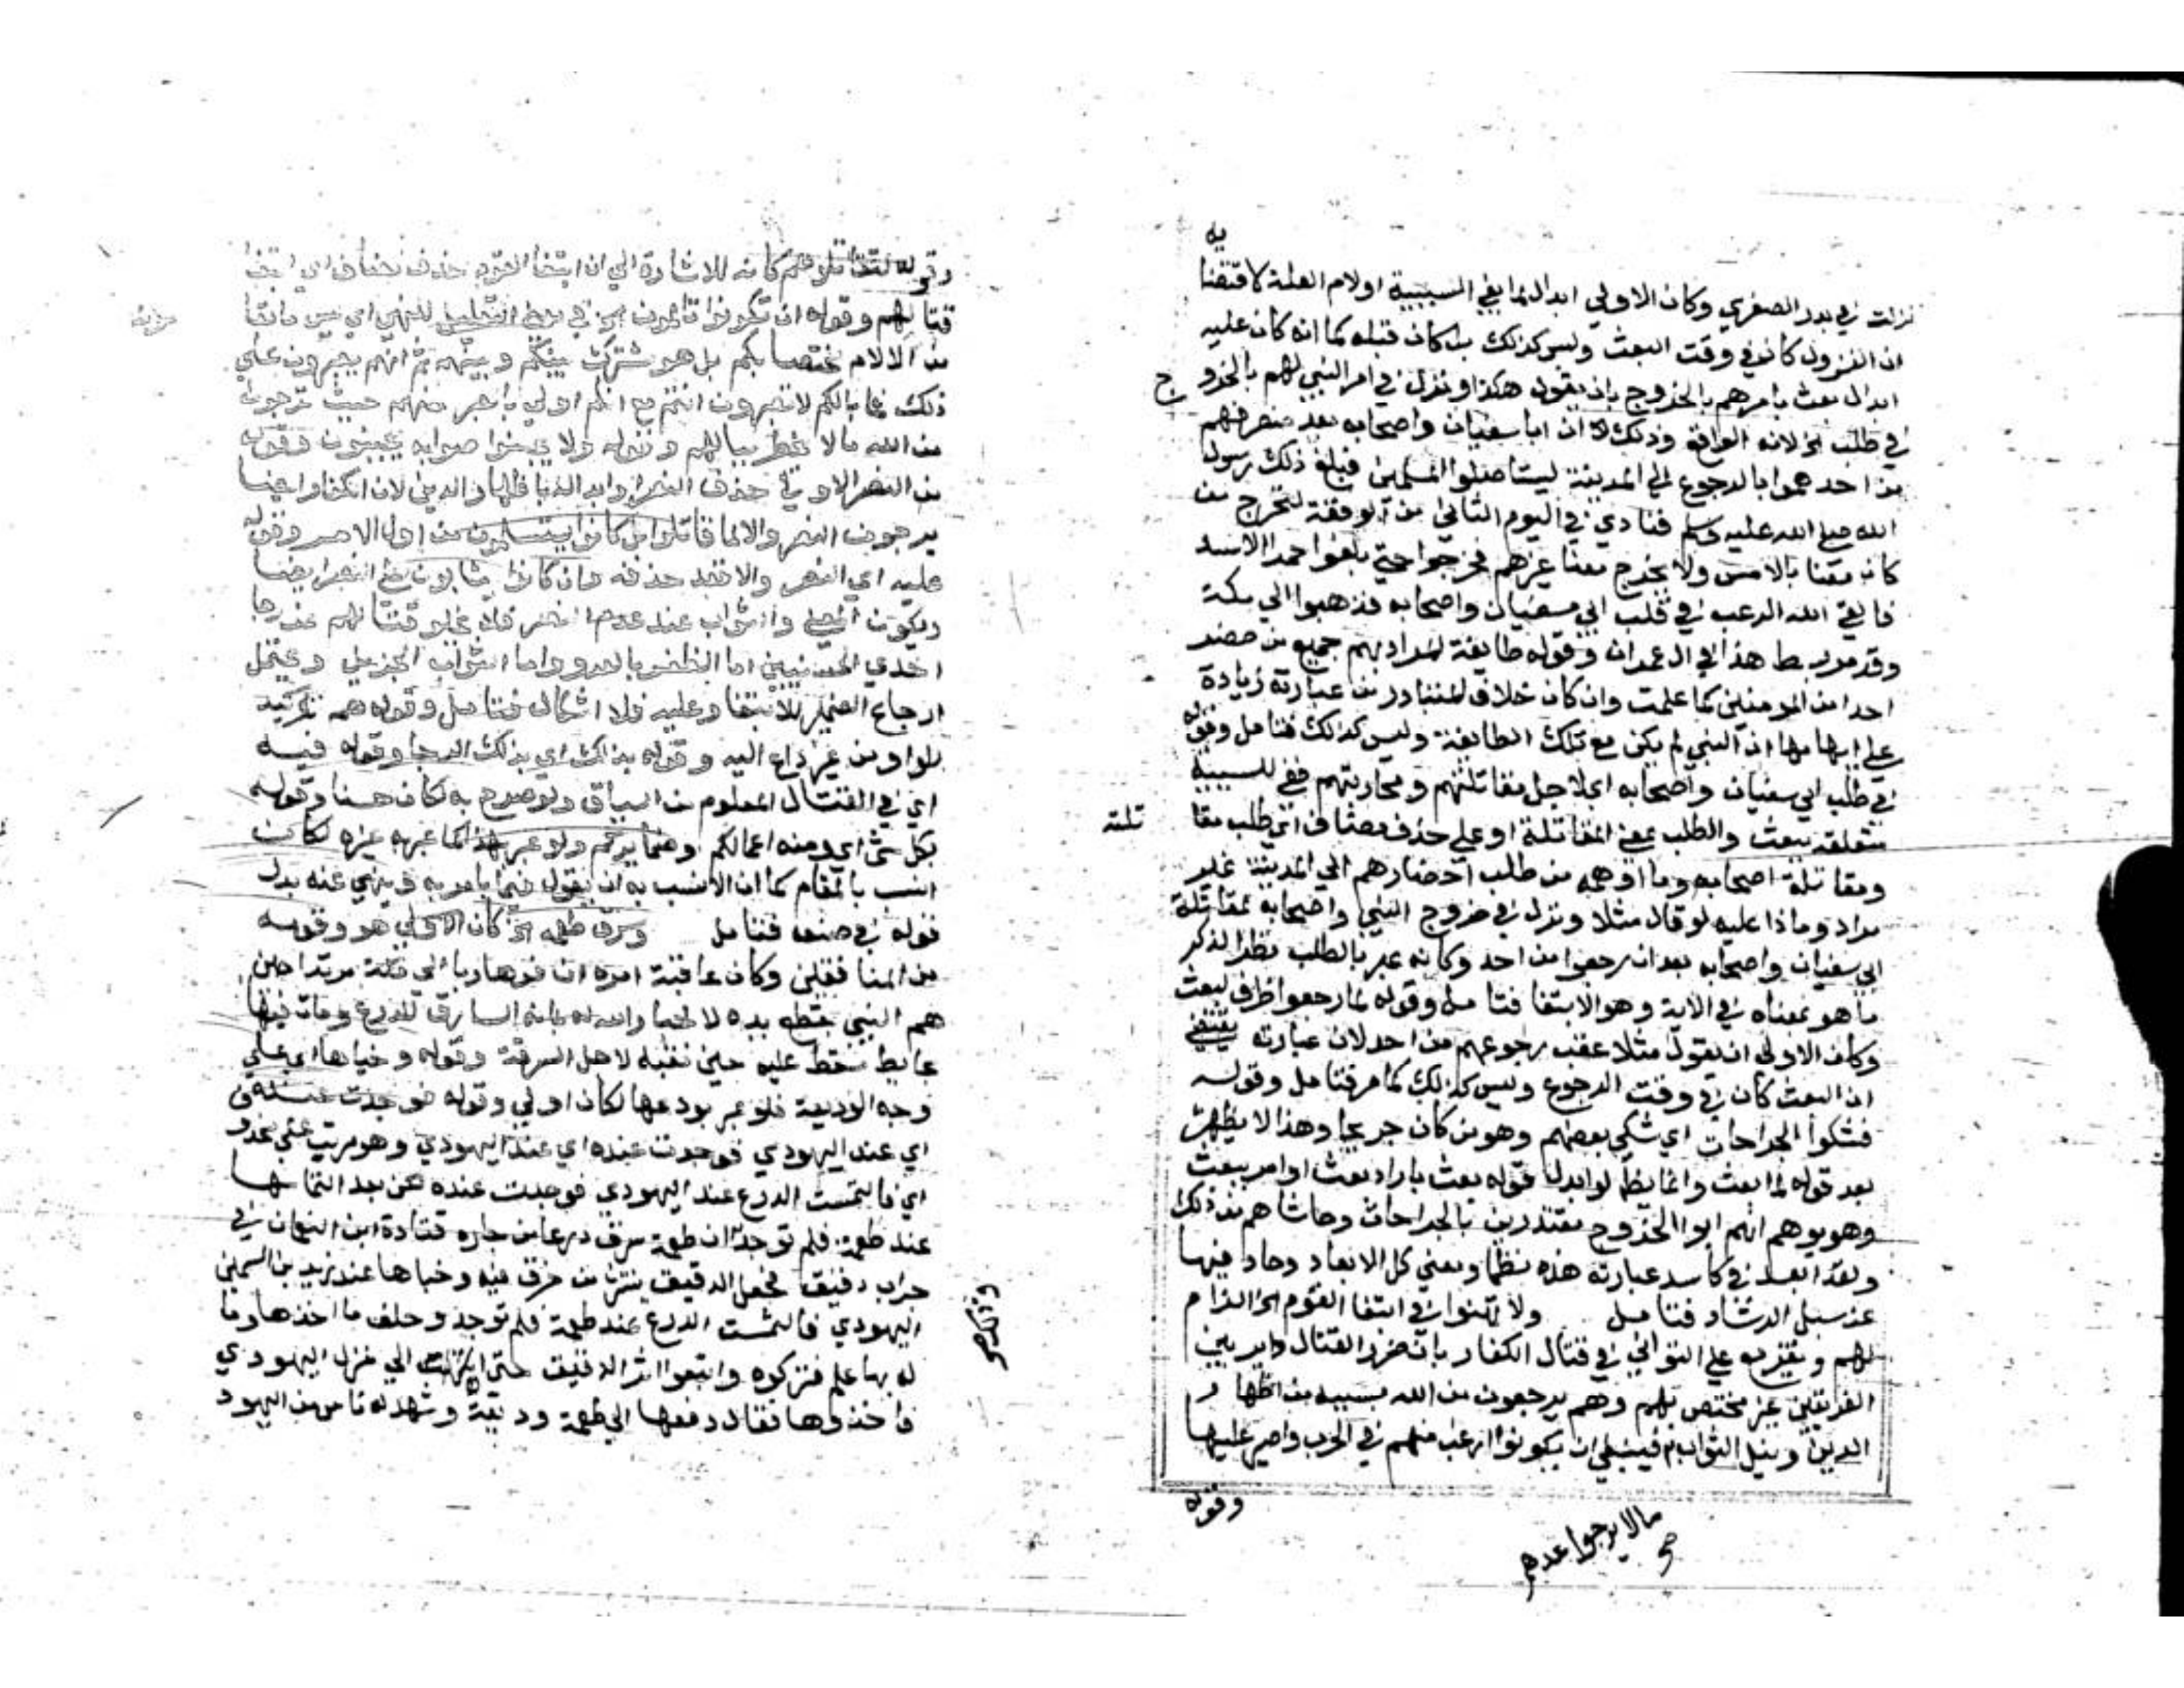 يه
نزلت في بدر الصغري وكان الاولي ابدال لما بفي السببية او لام العلة لاقتضا
ان النزول كان في وقت البعث وليس كذلك بل كان قبله كما انه كان عليه
ابدال بعث بامرهم بالخروج بان يقول هكذا ونزل في امر النبي لهم بالخروج
في طلب الخ لانه الواقع وذلك ان ابا سفيان واصحابه بعد منصرفهم
من احد هموا بالرجوع الي المدينة ليستاصلوا المسلمين فبلغ ذلك رسول
الله صلي الله عليه وسلم فنادي في اليوم الثاني من الوقعة لتخرج من
كان معنا بالامس ولا يخرج معنا غيرهم فخرجوا حتي بلغوا حمرا الاسد
فالقي الله الرعب في قلب ابي سفيان واصحابه فذهبوا الي مكة
وقد مر بسط هذا في ال عمران وقوله طايفة المراد بهم جميع من حضر
احدا من المومنين كما علمت وان كان خلاف المتبادر من عبارته زيادة
علي ايهامها ان النبي لم يكن مع تلك الطايفة وليس كذلك فتامل وقوله
في طلب ابي سفيان واصحابه اي لاجل مقاتلتهم ومحاربتهم ففي للسببية
متعلقة ببعث والطلب بمعني المقاتلة او علي حذف مضاف اي طلب مقا تلته
ومقاتلة اصحابه وما اوهمه من طلب احضارهم الي المدينة غير
مراد وماذا عليه لو قال مثلا ونزل في خروج النبي واصحابه لمقاتلة
ابي سفيان واصحابه بعد ان رجعوا من احد وكانه عبر بالطلب نظرا لذكر
ما هو بمعناه في الاية وهو الابتغا فتامل وقوله لما رجعوا ظرف لبعث
وكان الاولي ان يقول مثلا عقب رجوعهم من احد لان عبارته يقتضي
ان البعث كان في وقت الرجوع وليس كذلك كما مر فتامل وقوله
فشكوا الجراحات اي شكي بعضهم وهو من كان جريحا وهذا لا يظهر
بعد قوله لما بعث وانما يظهر لو ابدل قوله بعث باراد بعث او امر ببعث
وهو يوهم انهم ابوا الخروج معتذرين بالجراحات وحاشاهم من ذلك
ولقد ابعد في كاسد عبارته هذه نظما ومعني كل الابعاد وحاد فيها
عن سبل الرشاد فتامل ولا تهنوا في ابتغا القوم الخ الزام
لهم وتقريع علي التواني في قتال الكفار بان ضرر القتال داير بين
الفريقين غير مختص بهم وهم يرجعون من الله بسببه من اظهار
الدين ونيل الثواب فينبغي ان يكونوا ارغب منهم في الحرب واصبر عليها
وقوله
مالا يرجوا عدهم
صح
وقوله لقتالهم كانه للاشارة الي ان ابتغا القوم حذف مضاف اي ابتغا
قتالهم وقوله ان تكونوا تالمون الخ في موضع التعليل للنهي اي ليس ما تقا
من الالام مختصا بكم بل هو مشترك بينكم وبينهم ثم انهم يصبرون علي
ذلك فما بالكم لا تصبرون انتم مع انكم اولي بالصبر منهم حيث ترجون
من الله مالا يخطر ببالهم وقوله ولا يجبنوا صوابه يجبنون وقوله
من النصر الاولي حذف النصر وابداله باظهار الدين لان الكفار ايضا
يرجون النصر والا لما قاتلوا بل كانوا يستسلمون من اول الامر وقوله
عليه اي النصر والا فقد حذفه وان كانوا يثابون علي النصر ايضا
ويكون المعني والثواب عند عدم النصر فلا يخلو قتالهم عن رجا
احدي الحسنيين اما الظفر بالعدو واما الثواب الجزيل ويحتمل
ارجاع الضمير للابتغا وعليه فلا اشكال فتامل وقوله همه تركيد
للواو من غير داع اليه وقوله بذلك اي بذلك الرجا وقوله فيه
اي في القتال المعلوم من السياق ولو صرح به لكان حسنا وقوله
بكل شي اي ومنه اعمالكم وضمايركم ولو عبر بهذا كما عبر به غيره لكان
انسب بالمقام كما ان الانسب به ان يقول فيما يامر به وينهي عنه بدل
قوله في صنعه فتامل وسرق طعمة الخ كان الاولي هو وقومه
من المنافقين وكان عاقبة امره ان فر هاربا الي مكة مرتدا حين
هم النبي بقطع يده لاخبار الله له بانه السارق للدرع ومات فيها
بحايط سقط عليه حين نقبه لاجل السرقة وقوله وخباها اي علي
وجه الوديعة فلو عبر بودعها لكان اولي وقوله فوجدت عنده
اي عند اليهودي فوجدت عنده اي عند اليهودي وهو مرتب علي محذو
اي فالتمست الدرع عند اليهودي فوجدت عنده لكن بعد التماسها
عند طعمة فلم توجد ان طعمة سرق درعا من جاره قتادة ابن النعمان في
جراب دقيق فجعل الدقيق ينتثر من خرق فيه وخباها عند زيد بن السمين
اليهودي فالتمست الدرع عند طعمة فلم توجد وحلف ما اخذها وما
له بها علم فتركوه واتبعوا اثر الدقيق حتي انتهت الي منزل اليهودي
فاخذوها فقال دفعها الي طعمة وديعة وشهد له ناس من اليهود